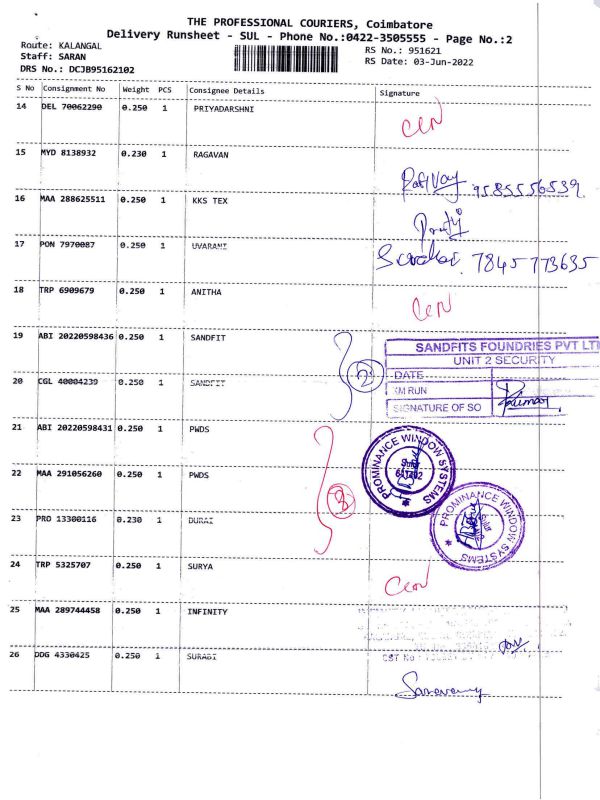 THE PROFESSIONAL COURIERS, Coimbatore
Delivery Runsheet - SUL - Phone No.:0422-3505555 - Page No.:2
Route: KALANGAL
Staff: SARAN
DRS No.: DCJB95162102
RS No.: 951621
RS Date: 03-Jun-2022
S No Consignment No Weight PCS Consignee Details Signature
14 DEL 70062290 0.250 1 PRIYADARSHNI
15 MYD 8138932 0.230 1 RAGAVAN
9585556539
16 MAA 288625511 0.250 1 KKS TEX
17 PON 7970087 0.250 1 UVARANI
7845773635
18 TRP 6909679 0.250 1 ANITHA
19 ABI 20220598436 0.250 1 SANDFIT
2
SANDFITS FOUNDRIES PVT LT
UNIT 2 SECURITY
DATE
KM RUN
SIGNATURE OF SO
Kumar
20 CGL 40004239 0.250 1 SANDFIT
21 ABI 20220598431 0.250 1 PWDS
3
PROMINANCE WINDOW SYSTEMS
Sulur
22 MAA 291056260 0.250 1 PWDS
PROMINANCE WINDOW SYSTEMS
23 PRO 13300116 0.230 1 DURAI
24 TRP 5325707 0.250 1 SURYA
25 MAA 289744458 0.250 1 INFINITY
CST No
26 DDG 4330425 0.250 1 SURABI